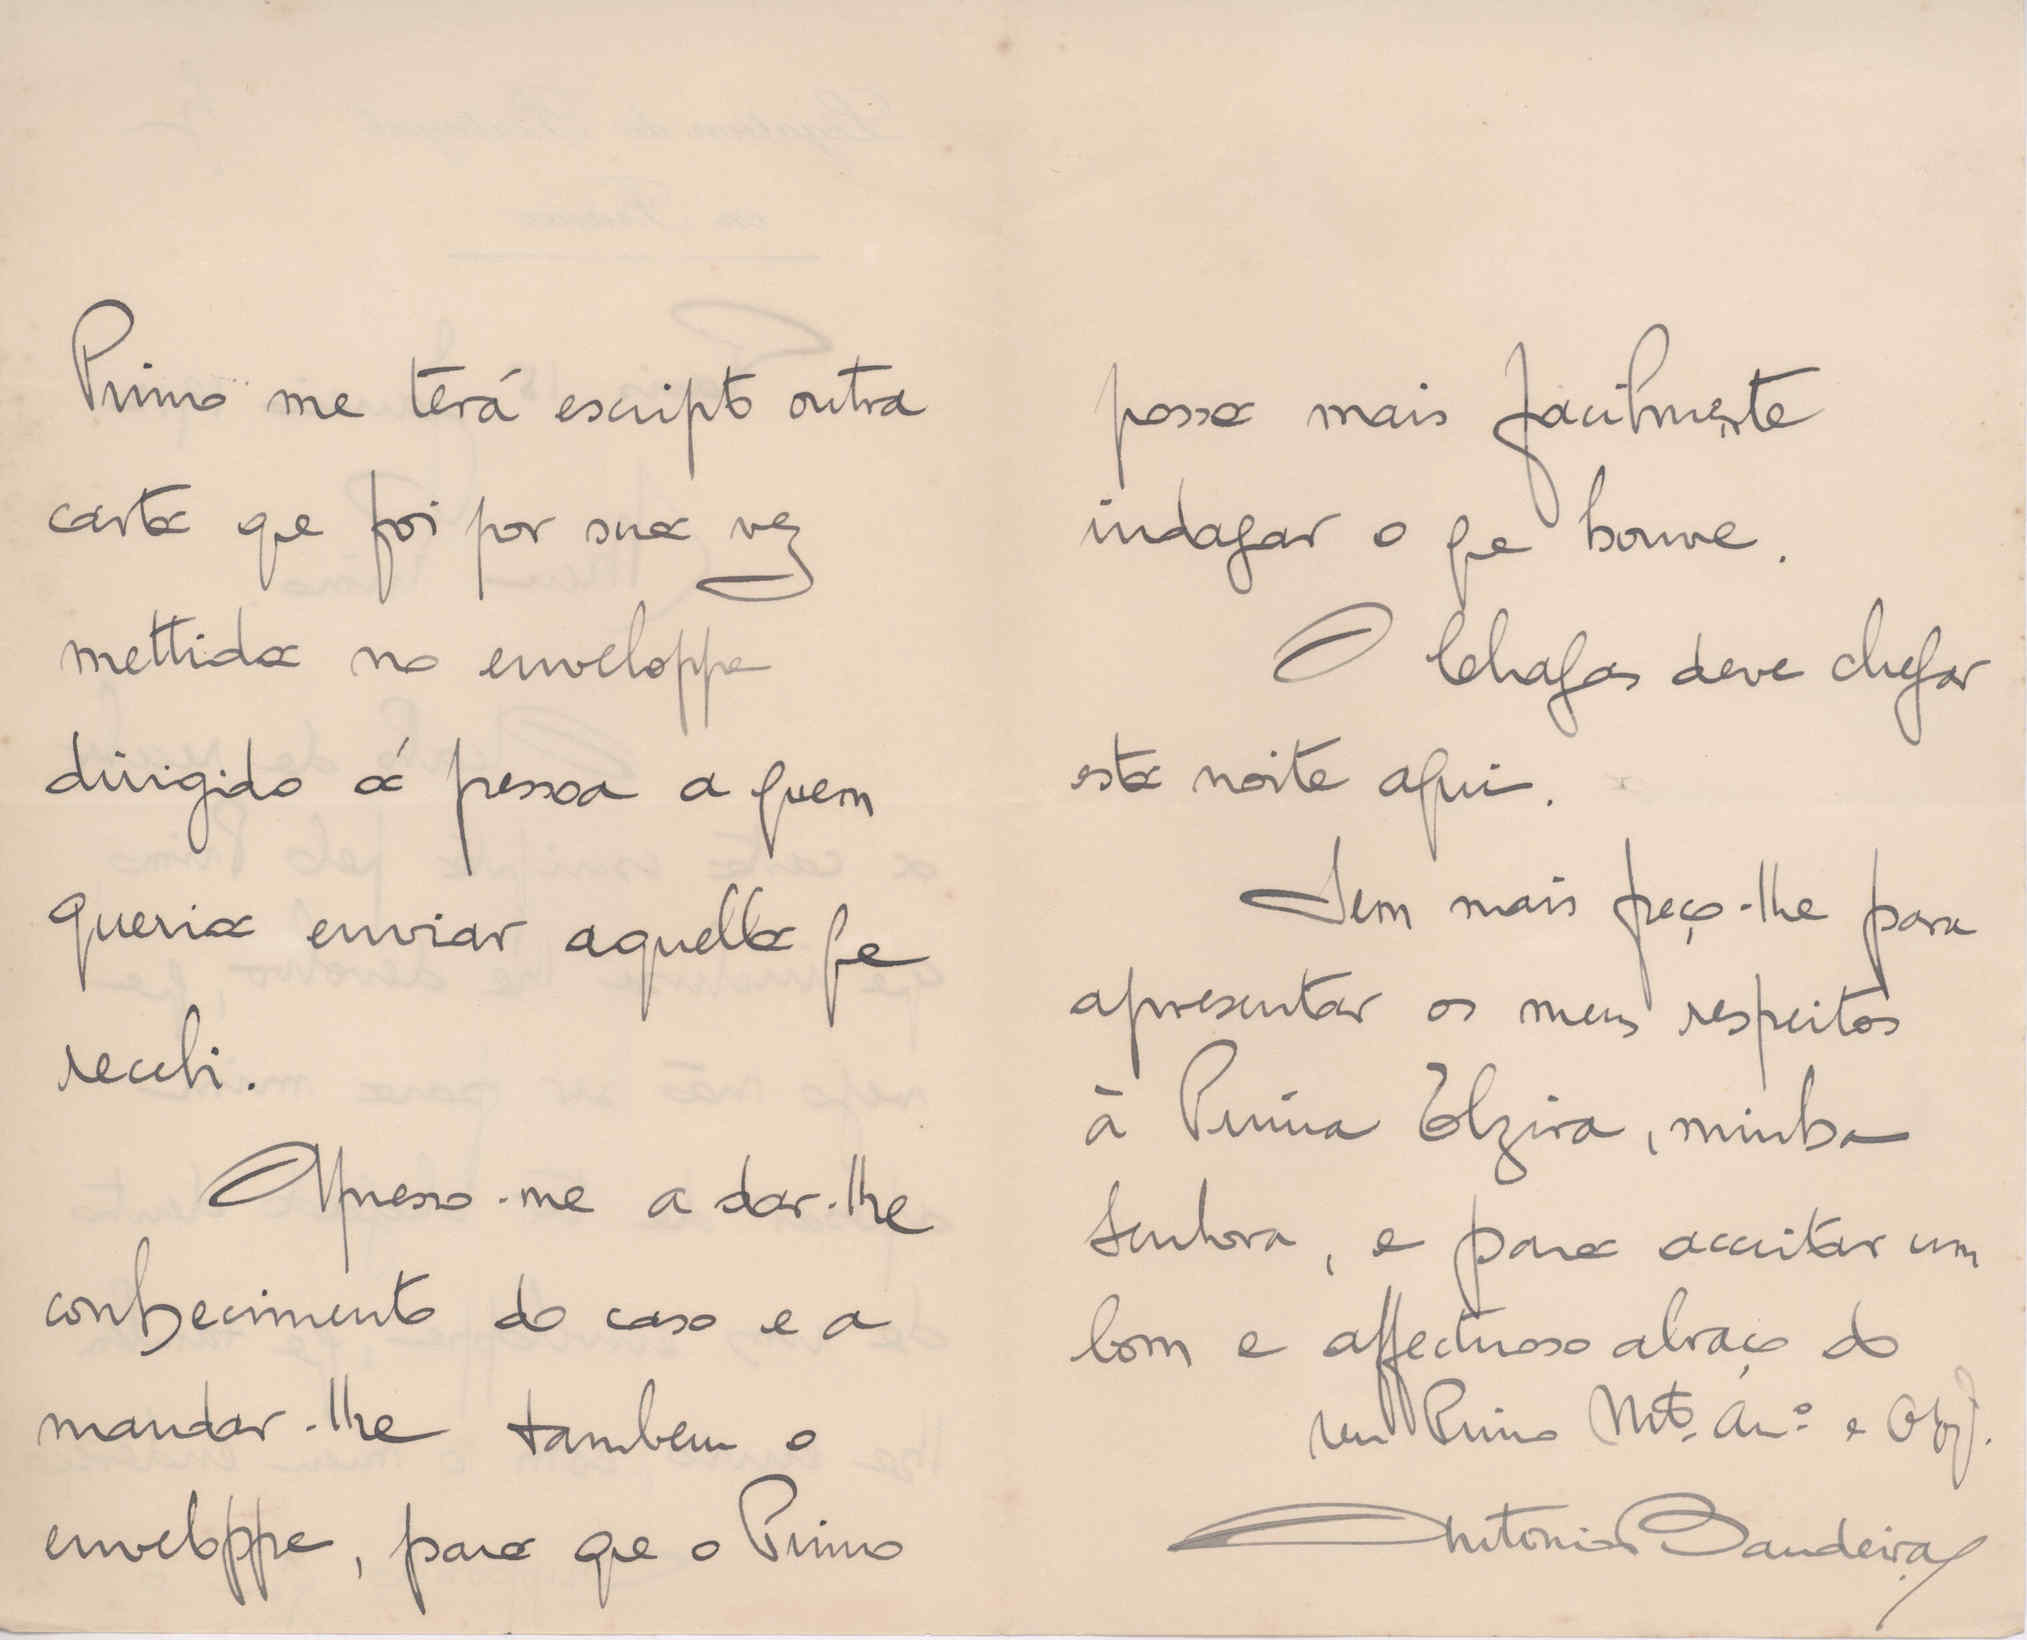 Primo me terá escripto outra
carta que foi por sua vez
mettida no enveloppe
dirigido á pessoa a quem
queria enviar aquella que
recebi.
Apresso-me a dar-lhe
conhecimento do caso e a
mandar-lhe tambem o
enveloppe, para que o Primo
possa mais facilmente
indagar o que houve.
O Chagas deve chegar
esta noite aqui.
Sem mais peço-lhe para
apresentar os meus respeitos
à Prima Elzira, minha
Senhora, e para acceitar um
bom e affectuoso abraço do
seu Primo Mto. Amº e Obj.
Antonio Bandeira